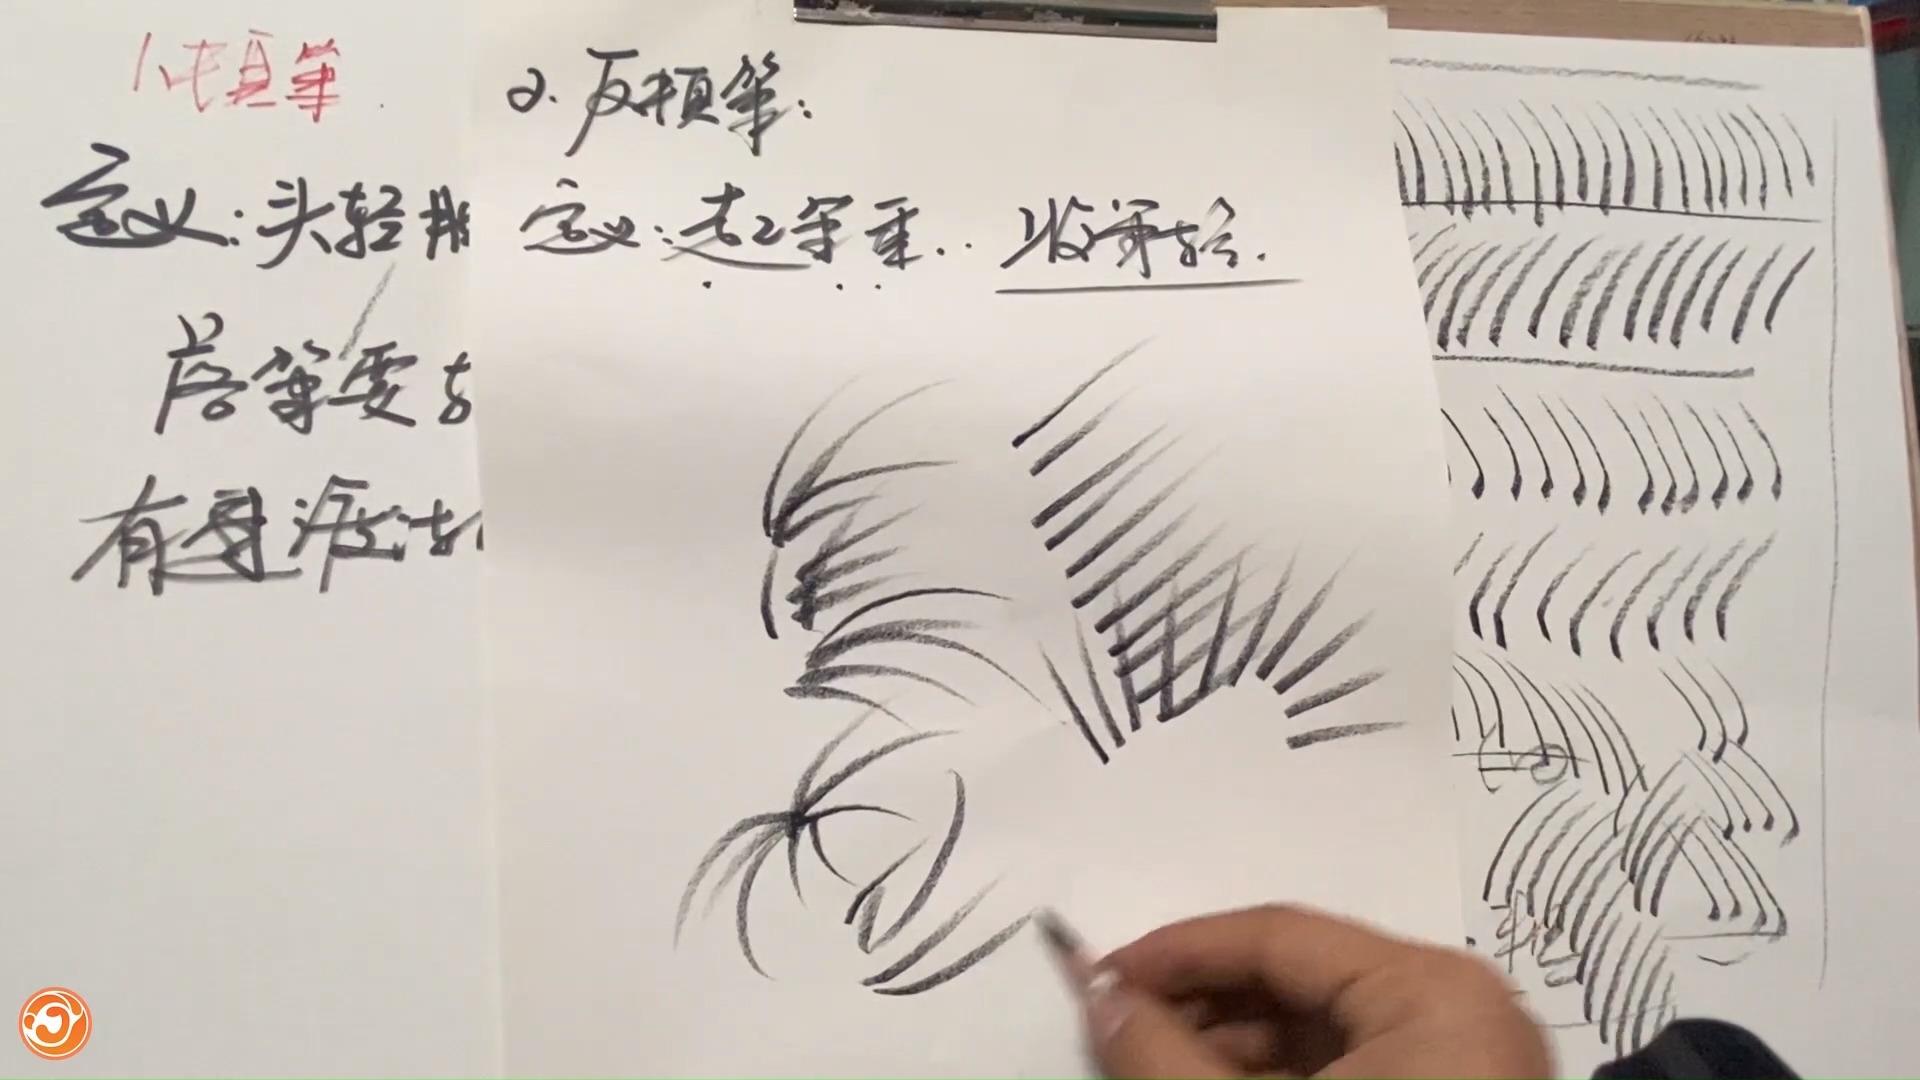 1、顿笔
定义：头轻
落笔要
有速度
2.反顿笔：
定义：起笔重.. 收笔轻.